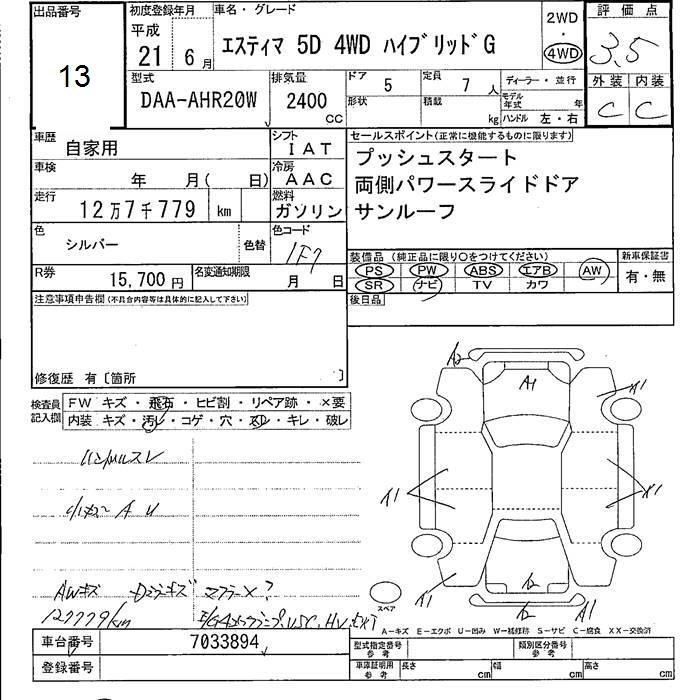 出品番号
13
初度登録年月
平成
21 6月
車名・グレード
エスティマ 5D 4WD ハイブリッドG
2WD
・
4WD
評価点
3.5
外装 内装
C C
型式
DAA-AHR20W
排気量
2400
CC
ドア 5
定員 7人
ディーラー・並行
形状
積載 kg
モデル年式 年
ハンドル 左・右
車歴 自家用
シフト IAT
車検 年 月( 日)
冷房 AAC
走行 12万7千779 km
燃料 ガソリン
色 シルバー 色替
色コード 1F7
R券 15,700円
名変通知期限 月 日
セールスポイント(正常に機能するものに限ります)
プッシュスタート
両側パワースライドドア
サンルーフ
装備品(純正品に限り○をつけてください)
PS PW ABS エアB AW
SR ナビ TV カワ
新車保証書
有・無
後日品
注意事項申告欄(不具合内容等は具体的に記入して下さい)
修復歴 有〔箇所 〕
検査員記入欄
FW キズ・飛石・ヒビ割・リペア跡・×要
内装 キズ・汚レ・コゲ・穴・スレ・キレ・破レ
ハンドルスレ
小キズ A U
AWキズ
127779km
A2
A1
A1
A1
A1
A1
スペア
A-キズ E-エクボ U-凹み W-補修跡 S-サビ C-腐食 XX-交換済
車台番号 7033894
登録番号
型式指定番号参考
類別区分番号参考
車庫証明用参考 長さ cm 幅 cm 高さ cm